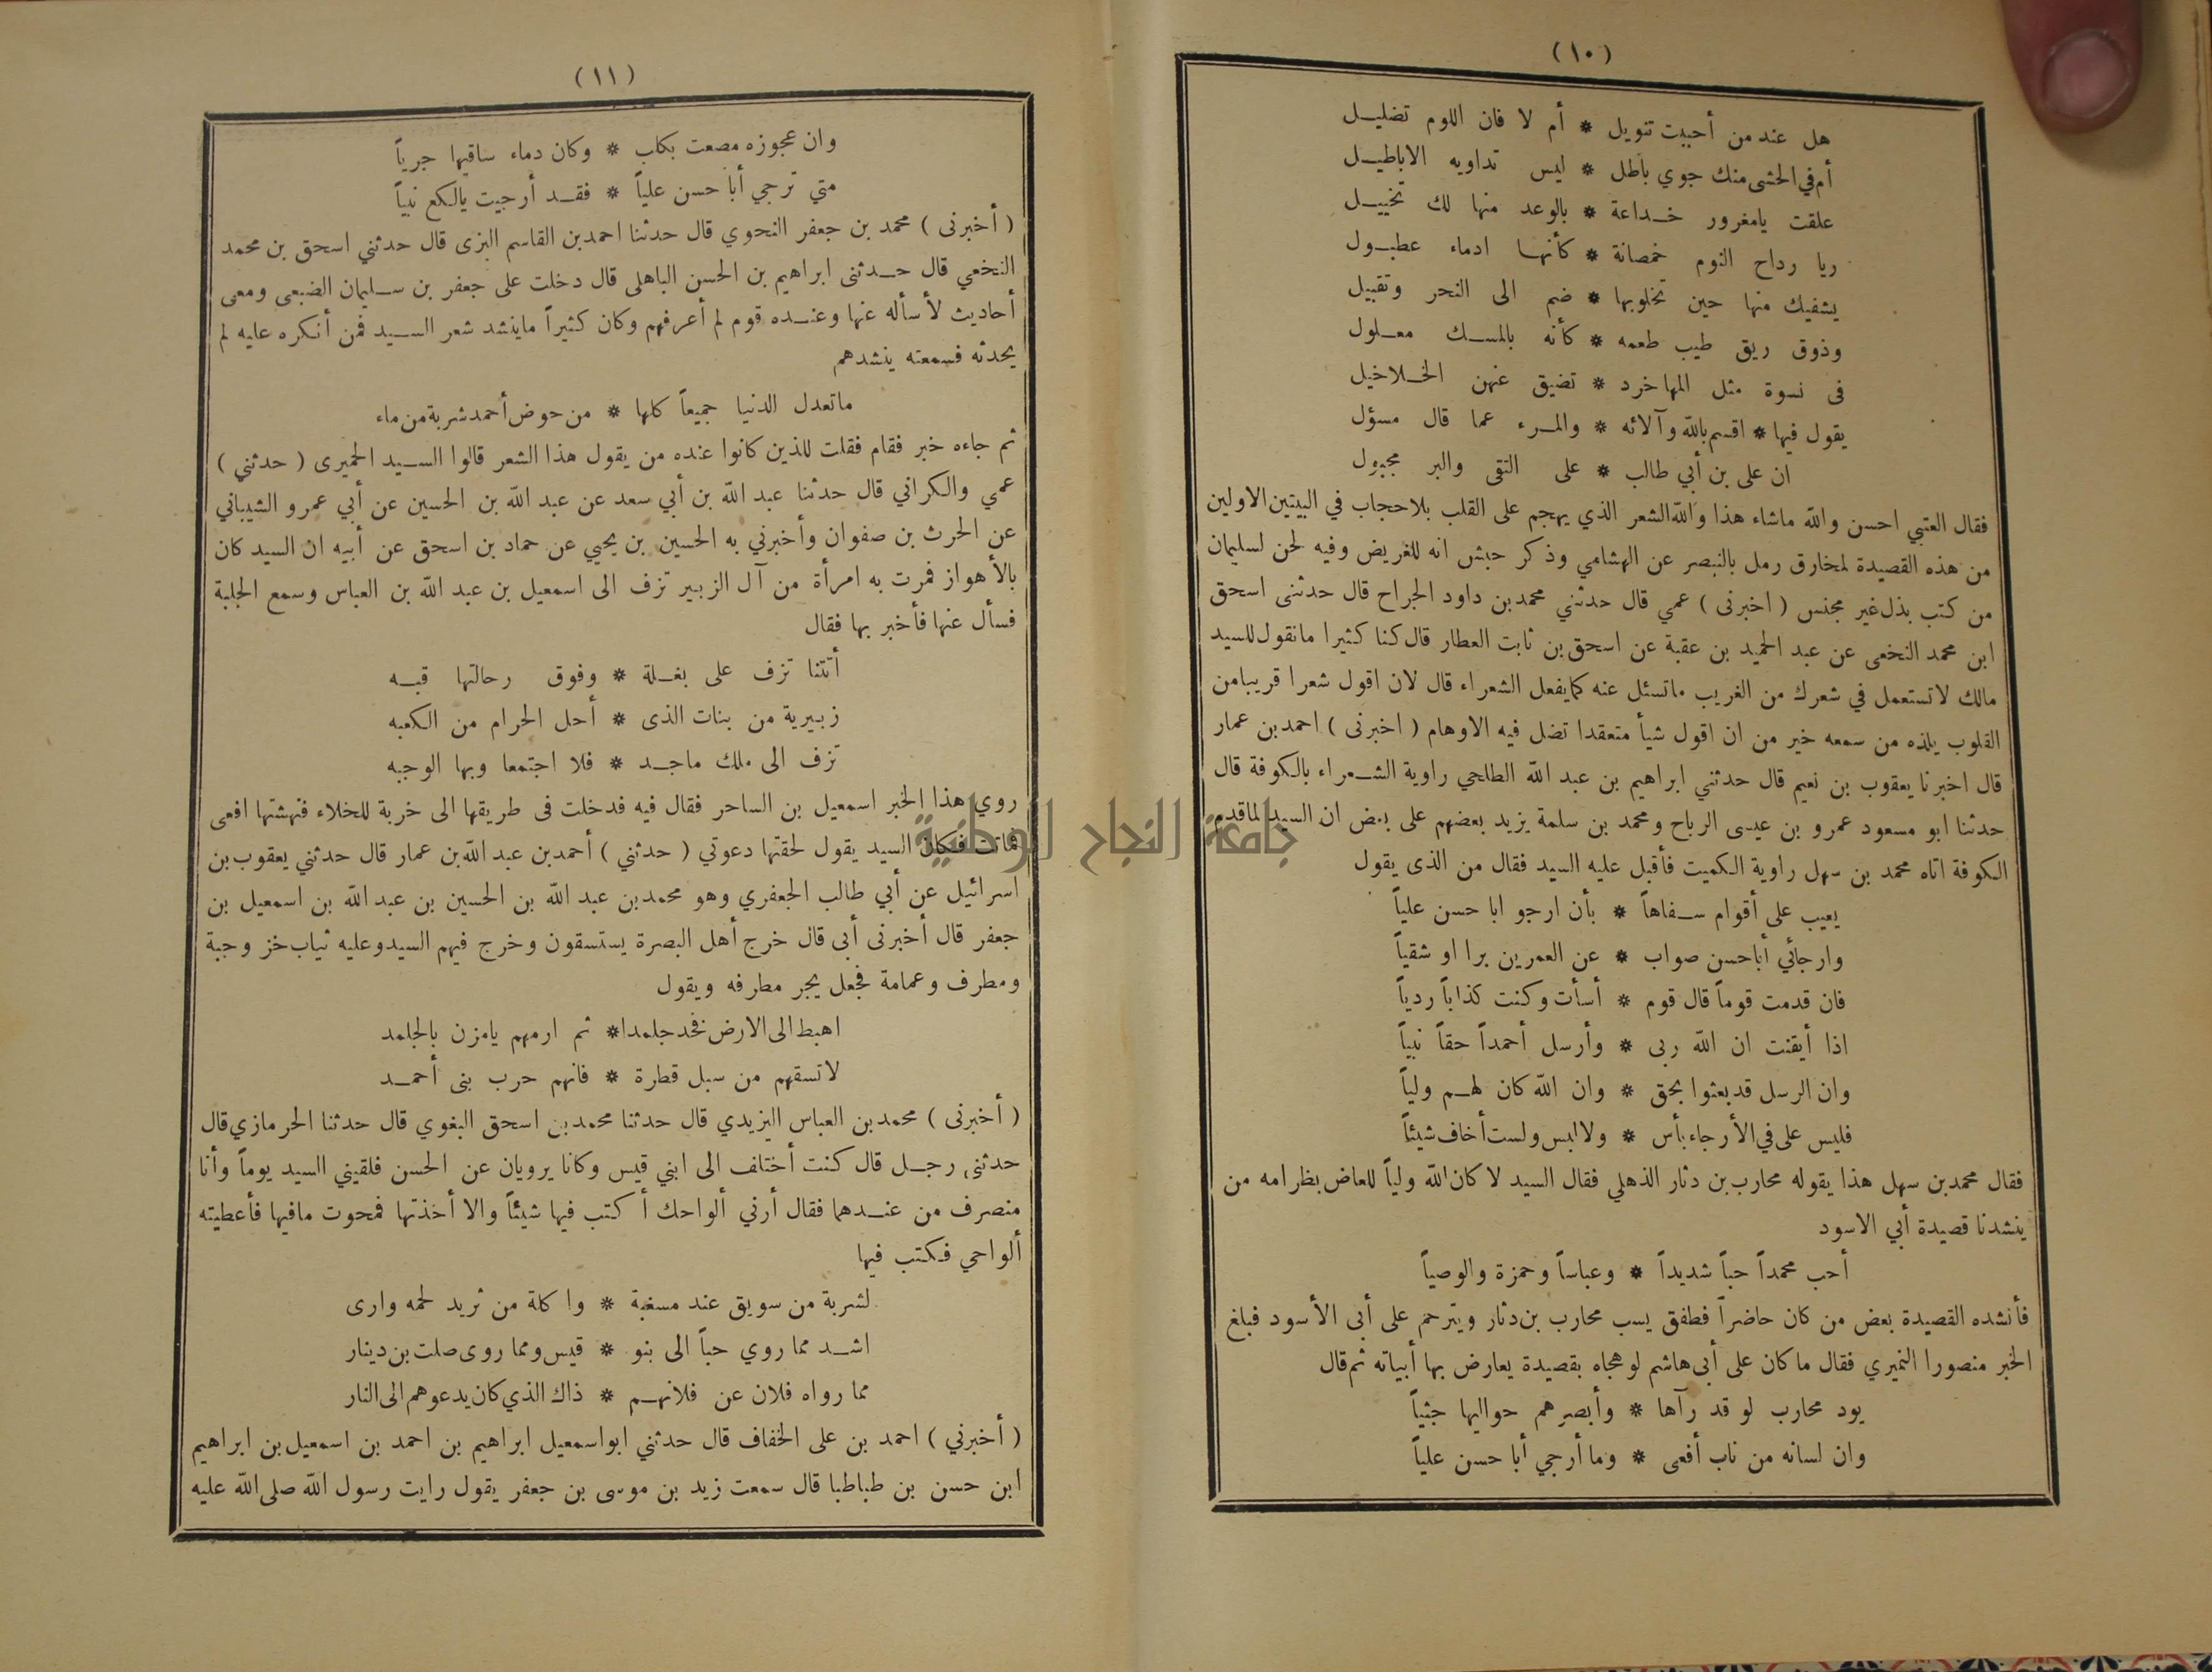 (١٠)
هل عند من أحببت تنويل * أم لا فان اللوم تضليل
أم في الحشى منك جوي باطل * ليس تداويه الاباطيل
علقت يامغرور خداعة * بالوعد منها لك تخييل
ريا رداح النوم خمصانة * كأنها ادماء عطبول
يشفيك منها حين تخلوبها * ضم الى النحر وتقبيل
وذوق ريق طيب طعمه * كأنه بالمسك معلول
في نسوة مثل المها خرد * تضيق عنهن الخلاخيل
يقول فيها * اقسم بالله وآلائه * والمرء عما قال مسؤل
ان على بن أبي طالب * على التقى والبر مجبول
فقال العتبي احسن والله ماشاء هذا والله الشعر الذي يهجم على القلب بلاحجاب في البيتين الاولين
من هذه القصيدة لمخارق رمل بالبنصر عن الهشامي وذكر حبش انه للغريض وفيه لحن لسليمان
من كتب بذل غير مجنس ( اخبرنى ) عمي قال حدثني محمد بن داود الجراح قال حدثنى اسحق
ابن محمد النخعى عن عبد الحميد بن عقبة عن اسحق بن ثابت العطار قال كنا كثيرا مانقول للسيد
مالك لاتستعمل في شعرك من الغريب ماتسئل عنه كمايفعل الشعراء قال لان اقول شعرا قريبا من
القلوب يلذه من سمعه خير من ان اقول شيأ متعقدا تضل فيه الاوهام ( اخبرنى ) احمد بن عمار
قال اخبرنا يعقوب بن نعيم قال حدثني ابراهيم بن عبد الله الطلحي راوية الشعراء بالكوفة قال
حدثنا ابو مسعود عمرو بن عيسى الرباح ومحمد بن سلمة يزيد بعضهم على بعض ان السيد لماقدم
الكوفة اتاه محمد بن سهل راوية الكميت فأقبل عليه السيد فقال من الذى يقول
يعيب على أقوام سفاهاً * بأن ارجو ابا حسن علياً
وارجائي أباحسن صواب * عن العمرين برا او شقياً
فان قدمت قوماً قال قوم * أسأت وكنت كذاباً ردياً
اذا أيقنت ان الله ربى * وأرسل أحمداً حقاً نبياً
وان الرسل قد بعثوا بحق * وان الله كان لهم ولياً
فليس على في الأرجاء بأس * ولا لبس ولست أخاف شيئاً
فقال محمد بن سهل هذا يقوله محارب بن دثار الذهلي فقال السيد لا كان الله ولياً للعاض بظر امه من
ينشدنا قصيدة أبي الاسود
أحب محمداً حباً شديداً * وعباساً وحمزة والوصياً
فأنشده القصيدة بعض من كان حاضراً فطفق يسب محارب بن دثار ويترحم على أبى الأسود فبلغ
الخبر منصورا النميري فقال ما كان على أبى هاشم لو هجاه بقصيدة يعارض بها أبياته ثم قال
يود محارب لو قد رآها * وأبصرهم حواليها جثياً
وان لسانه من ناب أفعى * وما أرجي أبا حسن علياً
(١١)
وان عجوزه مصعت بكلب * وكان دماء ساقيها جرياً
متي ترجي أبا حسن علياً * فقد أرجيت يالكع نبياً
( أخبرنى ) محمد بن جعفر النحوي قال حدثنا احمد بن القاسم البزى قال حدثني اسحق بن محمد
النخعي قال حدثنى ابراهيم بن الحسن الباهلى قال دخلت على جعفر بن سليمان الضبعى ومعى
أحاديث لأسأله عنها وعنده قوم لم أعرفهم وكان كثيراً ماينشد شعر السيد فمن أنكره عليه لم
يحدثه فسمعته ينشدهم
ماتعدل الدنيا جميعاً كلها * من حوض أحمد شربة من ماء
ثم جاءه خبر فقام فقلت للذين كانوا عنده من يقول هذا الشعر قالوا السيد الحميرى ( حدثني )
عمي والكراني قال حدثنا عبد الله بن أبي سعد عن عبد الله بن الحسين عن أبي عمرو الشيباني
عن الحرث بن صفوان وأخبرني به الحسين بن يحيي عن حماد بن اسحق عن أبيه ان السيد كان
بالأهواز فمرت به امرأة من آل الزبير تزف الى اسمعيل بن عبد الله بن العباس وسمع الجلبة
فسأل عنها فأخبر بها فقال
أتتنا تزف على بغلة * وفوق رحالتها قبه
زبيرية من بنات الذى * أحل الحرام من الكعبه
تزف الى ملك ماجد * فلا اجتمعا وبها الوجبه
روي هذا الخبر اسمعيل بن الساحر فقال فيه فدخلت فى طريقها الى خربة للخلاء فنهشتها افعى
فماتت فكان السيد يقول لحقتها دعوتي ( حدثني ) أحمد بن عبد الله بن عمار قال حدثني يعقوب بن
اسرائيل عن أبي طالب الجعفري وهو محمد بن عبد الله بن الحسين بن عبد الله بن اسمعيل بن
جعفر قال أخبرنى أبى قال خرج أهل البصرة يستسقون وخرج فيهم السيد وعليه ثياب خز وجبة
ومطرف وعمامة فجعل يجر مطرفه ويقول
اهبط الى الارض فخذ جلمدا * ثم ارمهم يامزن بالجلمد
لاتسقهم من سبل قطرة * فانهم حرب بنى أحمد
( أخبرنى ) محمد بن العباس اليزيدي قال حدثنا محمد بن اسحق البغوي قال حدثنا الحرمازي قال
حدثنى رجل قال كنت أختلف الى ابني قيس وكانا يرويان عن الحسن فلقيني السيد يوماً وأنا
منصرف من عندهما فقال أرني ألواحك أكتب فيها شيئاً والا أخذتها فمحوت مافيها فأعطيته
ألواحي فكتب فيها
لشربة من سويق عند مسغبة * وا كلة من ثريد لحمه وارى
اشد مما روي حباً الى بنو * قيس ومما روى صلت بن دينار
مما رواه فلان عن فلانهم * ذاك الذي كان يدعوهم الى النار
( أخبرني ) احمد بن على الخفاف قال حدثني ابو اسمعيل ابراهيم بن احمد بن اسمعيل بن ابراهيم
ابن حسن بن طباطبا قال سمعت زيد بن موسى بن جعفر يقول رايت رسول الله صلى الله عليه
جامعة النجاح الوطنية